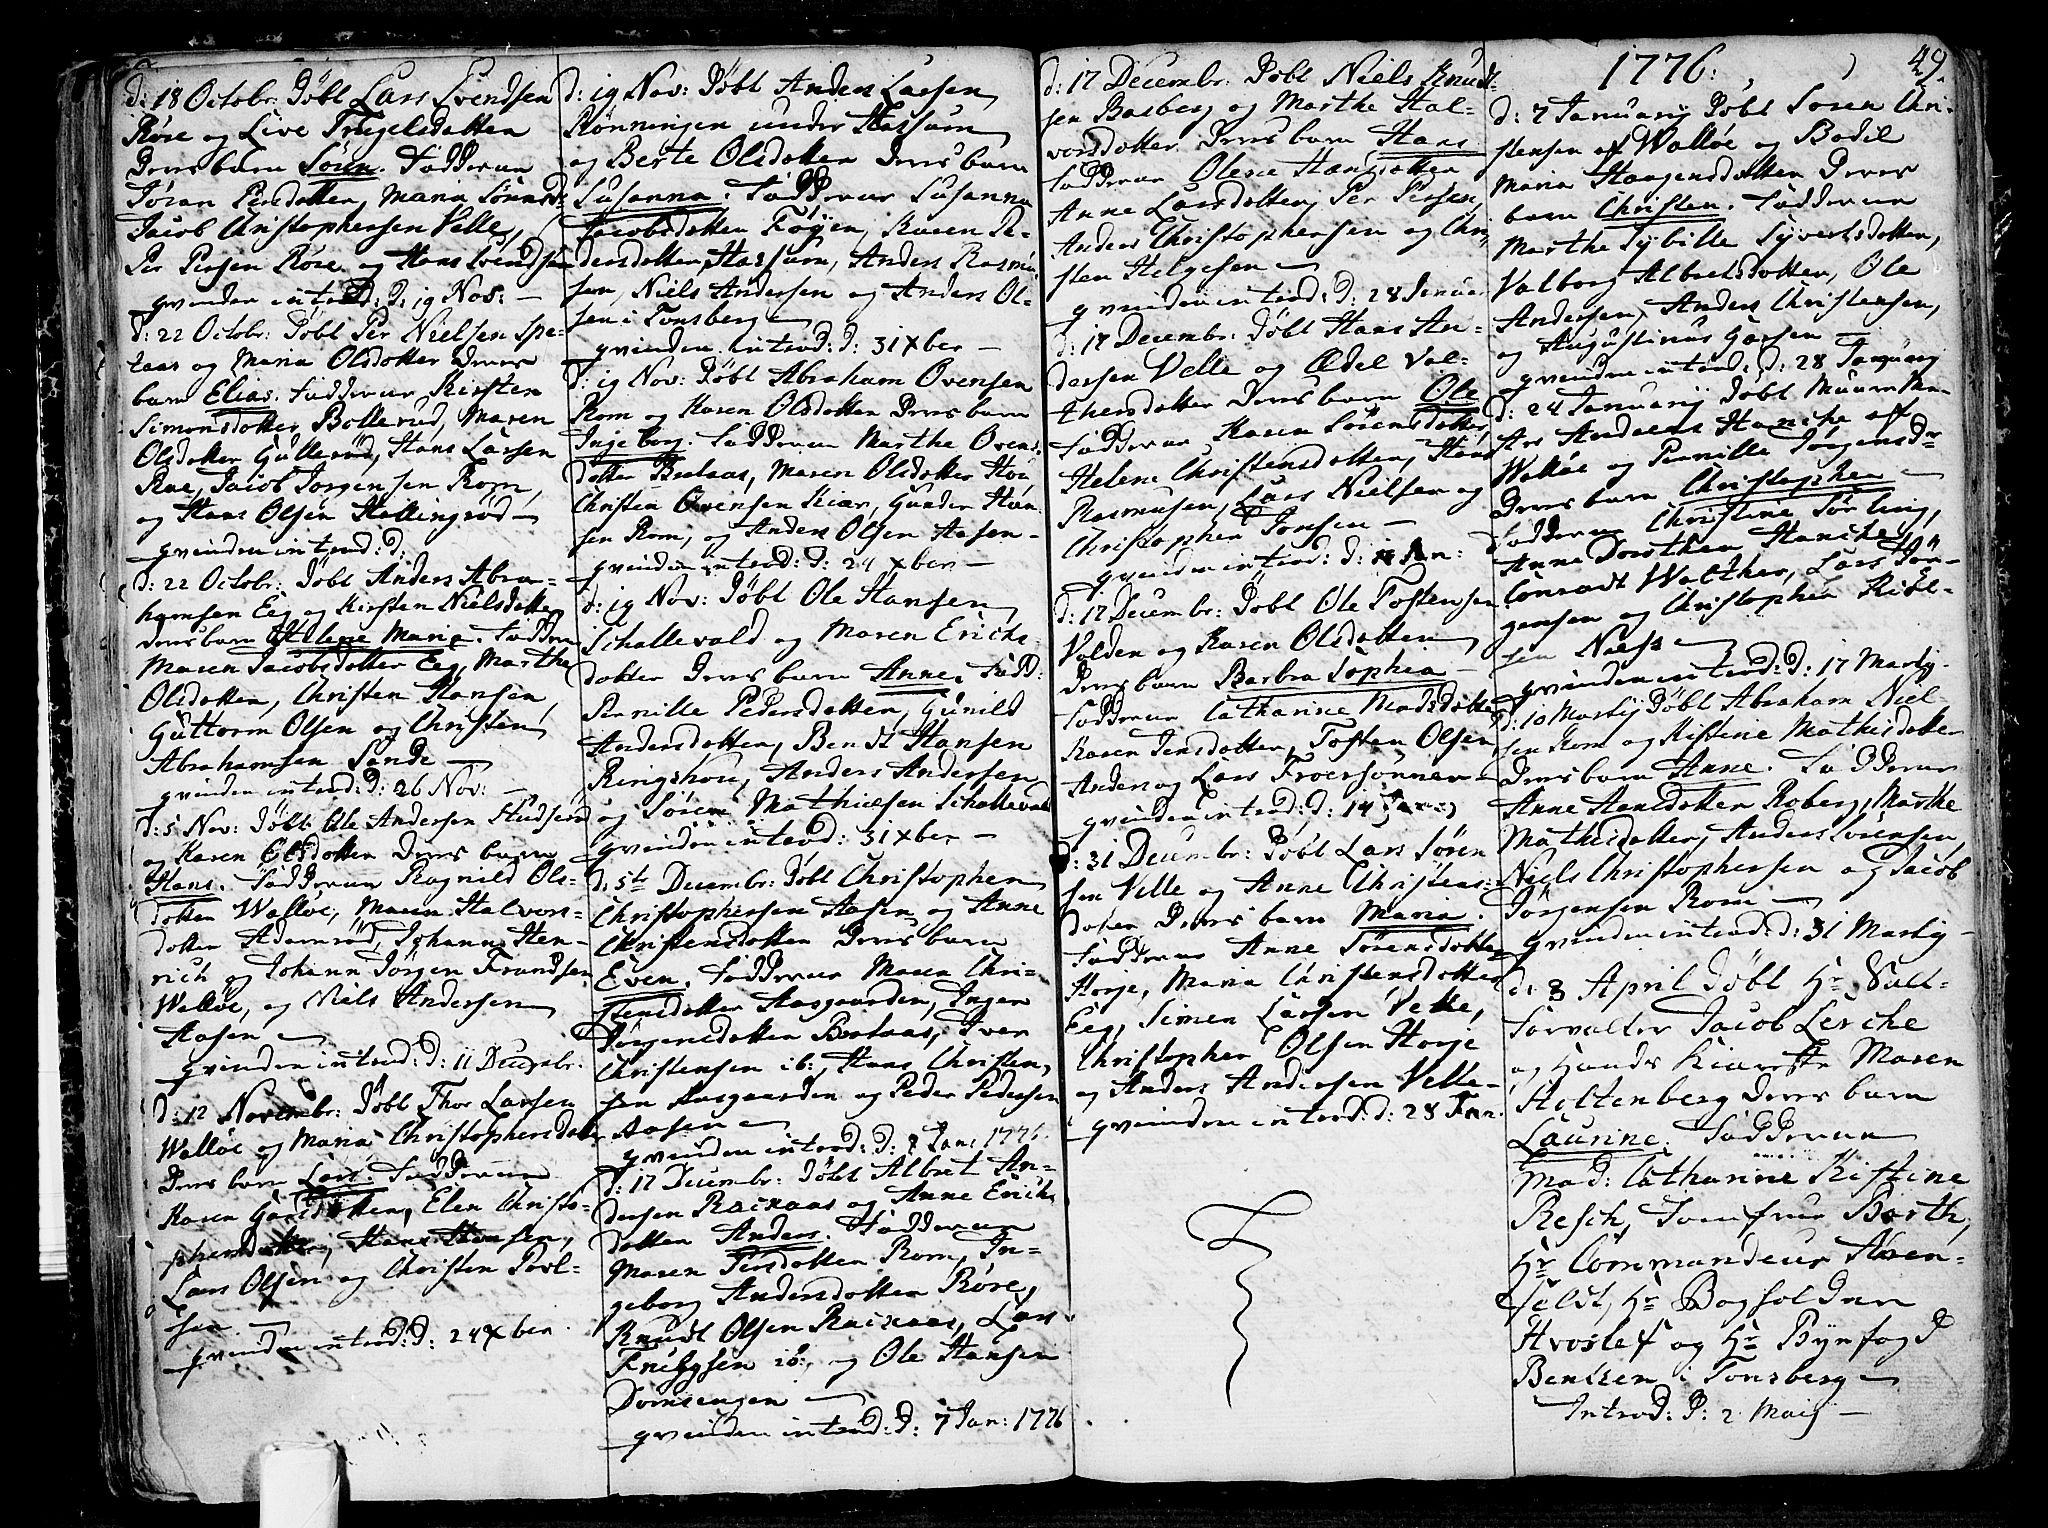 d: 18 Octobr: Døbt Lars Svendsen
Røre og Live Trugelsdotter
Deres barn Søren. Fadderne
Jøran Persdotter, Maria Sørensd:
Jacob Christophersen Velle,
Per Persen Røre og Hans Svendsen
qvinden introd: d: 19 Nov: —
d: 22 Octobr: Døbt Per Nielsen Spe-
taas og Maria Olsdotter deres
barn Elias. Fadderne Kirsten
Simonsdotter Bollerud, Maren
Olsdotter Gullerød, Hans Larsen
Roe, Jacob Jørgensen Rom,
og Hans Olsen Hallingrød —
qvinden introd: d:
d: 22 Octobr: Døbt Anders Abra-
hamsen Eeg og Kirsten Nielsdotter
deres barn Helene Maria. Fadder:
Maren Jacobsdotter Eeg, Marthe
Olsdotter, Christen Hansen,
Guttorm Olsen og Christen
Abrahamsen Sande —
qvinden introd: d: 26 Nov: —
d: 5 Nov: Døbt Ole Andersen
og Karen Olsdotter deres barn
Hans. Fadderne Ragnild Ols-
dotter Walløe, Maren Halvors-
dotter Adernrød, Johann Hen-
rich og Johann Jørgen Frandsen
Walløe, og Niels Andersen
Aasen —
qvinden introd: d: 11 Decembr:
d: 12 Novembr: Døbt Thor Larsen
Walløe og Maria Christophersdotter
Deres barn Lars. Fadderne
Karen Dotter, Elen Christo-
phersdotter, Hans Hansen,
Lars Olsen og Christen Poel-
sen —
qvinden introd: d: 24 Xber.
d: 19 Nov: Døbt Anders Larsen
Rønningen under Hassum
og Berte Olsdotter Deres barn
Susanna. Fadderne Susanna
Jacobsdotter Føyen, Karen Pe-
dersdotter Hassum, Anders Rasmu-
sen, Niels Andersen og Anders Ol-
sen i Tønsberg —
qvinden introd: d: 31 Xber —
d: 19 Nov: Døbt Abraham Ovensen
Rom og Karen Olsdotter Deres barn
Ingeborg. Fadderne Marthe Ovens-
dotter Berlaas, Maren Olsdotter
Christen Ovensen Kiær, Gunder Han-
sen Rom, og Anders Olsen Aasen —
qvinden introd: d: 24 Xber —
d: 19 Nov: Døbt Ole Hansen
Schallevald og Maren Erichs-
dotter Deres barn Anne. Fadd:
Pernille Pedersdotter, Gunild
Andersdotter, Bendt Hansen
Ringshou, Anders Andersen
og Søren Mathiesen Schallevald
qvinden introd: 31 Xber —
d: 5te Decembr: Døbt Christopher
Christophersen Aasen og Anne
Christensdotter Deres barn
Even. Fadderne Maren Chri-
stensdotter Aasgaarden, Inger
Jørgensdotter Berlaas, Iver
Christensen ib:, Hans Christen-
sen Aasgaarden og Peder Pedersen
Aasen —
qvinden introd: d: 7 Jan: 1776
d: 17 Decembr: Døbt Albret An-
dersen Racnaas og Anne Erichs
dotter Anders. Fadderne
Maren Persdotter Rom, In-
geborg Andersdotter Røre,
Knudt Olsen Racnaas, Lars
ib:, og Ole Hansen
Domsengen —
qvinden introd: d: 7 Jan: 1776
d: 17 Decembr: Døbt Niels Knudt-
sen Basberg og Marthe Hal-
vorsdotter Deres barn Hans
Fadderne Olea Hansdotter
Anne Larsdotter, Per Persen,
Anders Christophersen og Chri-
sten Helgesen —
qvinden introd: d: 28 Januar
d: 17 Decembr: Døbt Hans An-
dersen Velle og Ædel Vol-
thersdotter Deres barn Ole
Fadderne Karen Sørensdotter,
Helene Christensdotter, Hans
Rasmusen, Lars Nielsen og
Christopher Jonsen —
qvinden introd: d: Jan:
d: 17 Decembr: Døbt Ole Tostensen
Volden og Karen Olsdotter
Deres barn Barbra Sophia —
Fadderne Catharine Madsdotter
Karen Jensdotter, Tosten Olsen
Anders og Lars Troersønner —
qvinden introd: d: 14 Jan:
d: 31 Decembr: Døbt Lars Søren
sen Velle og Anne Christens-
dotter Deres barn Maria.
Fadderne Anne Sørensdotter
Horje, Maria Christensdotter
Eeg, Simen Larsen Velle,
Christopher Olsen Horje
og Anders Andersen Velle —
qvinden introd: d: 28 Jan:
1776. 49.
d: 7 Januarij Døbt Søren Chri-
stensen af Walløe og Bodil
Maria Haagensdotter Deres
barn Christen. Fadderne
Marthe Sybille Syvertsdotter,
Valborg Albretsdotter, Ole
Andersen, Anders Christensen,
og Augustinus Larsen
qvinden introd: d: 28 Januarij
d: 24 Januarij Døbt Muurme-
ster Andreas Hanche af
Walløe og Pernille Jørgensdr
Deres barn Christopher —
Fadderne Christine Sørling,
Anne Dorothea Hanche,
Conradt Walther, Lars Jør-
gensen og Christopher
sen Næss —
qvinden introd: d: 17 Martij
d: 10 Martij Døbt Abraham Niel-
sen Rom og Kistine Mathisdotter
Deres barn Anne. Fadderne
Anne Hansdotter Roberg, Marthe
Mathisdotter, Anders Sørensen,
Niels Christophersen og Jacob
Jørgensen Rom —
qvinden introd: d: 31 Martij —
d: 8 April Døbt Hr. Salt-
forvalter Jacob Lerche
og Hands Kiæreste Maren
Holtenberg Deres barn
Laurine. Fadderne
Mad: Catharine Kistine
Resch, Jomfrue Barth,
Hr Commandeur Støren-
feldt, Hr Bogholder
Hvoslef og Hr Byefogd
Bentzen i Tønsberg —
Introd: d: 2 Maij —